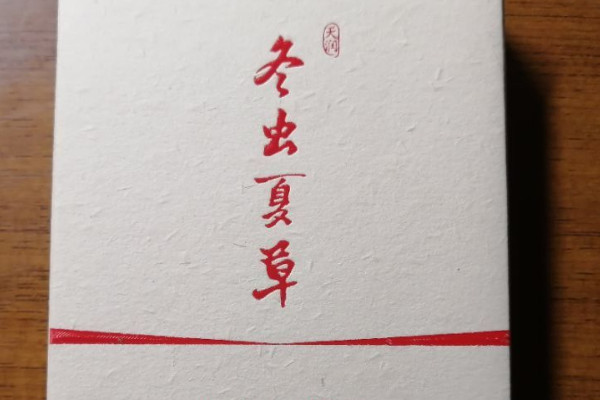 冬虫夏草
天润